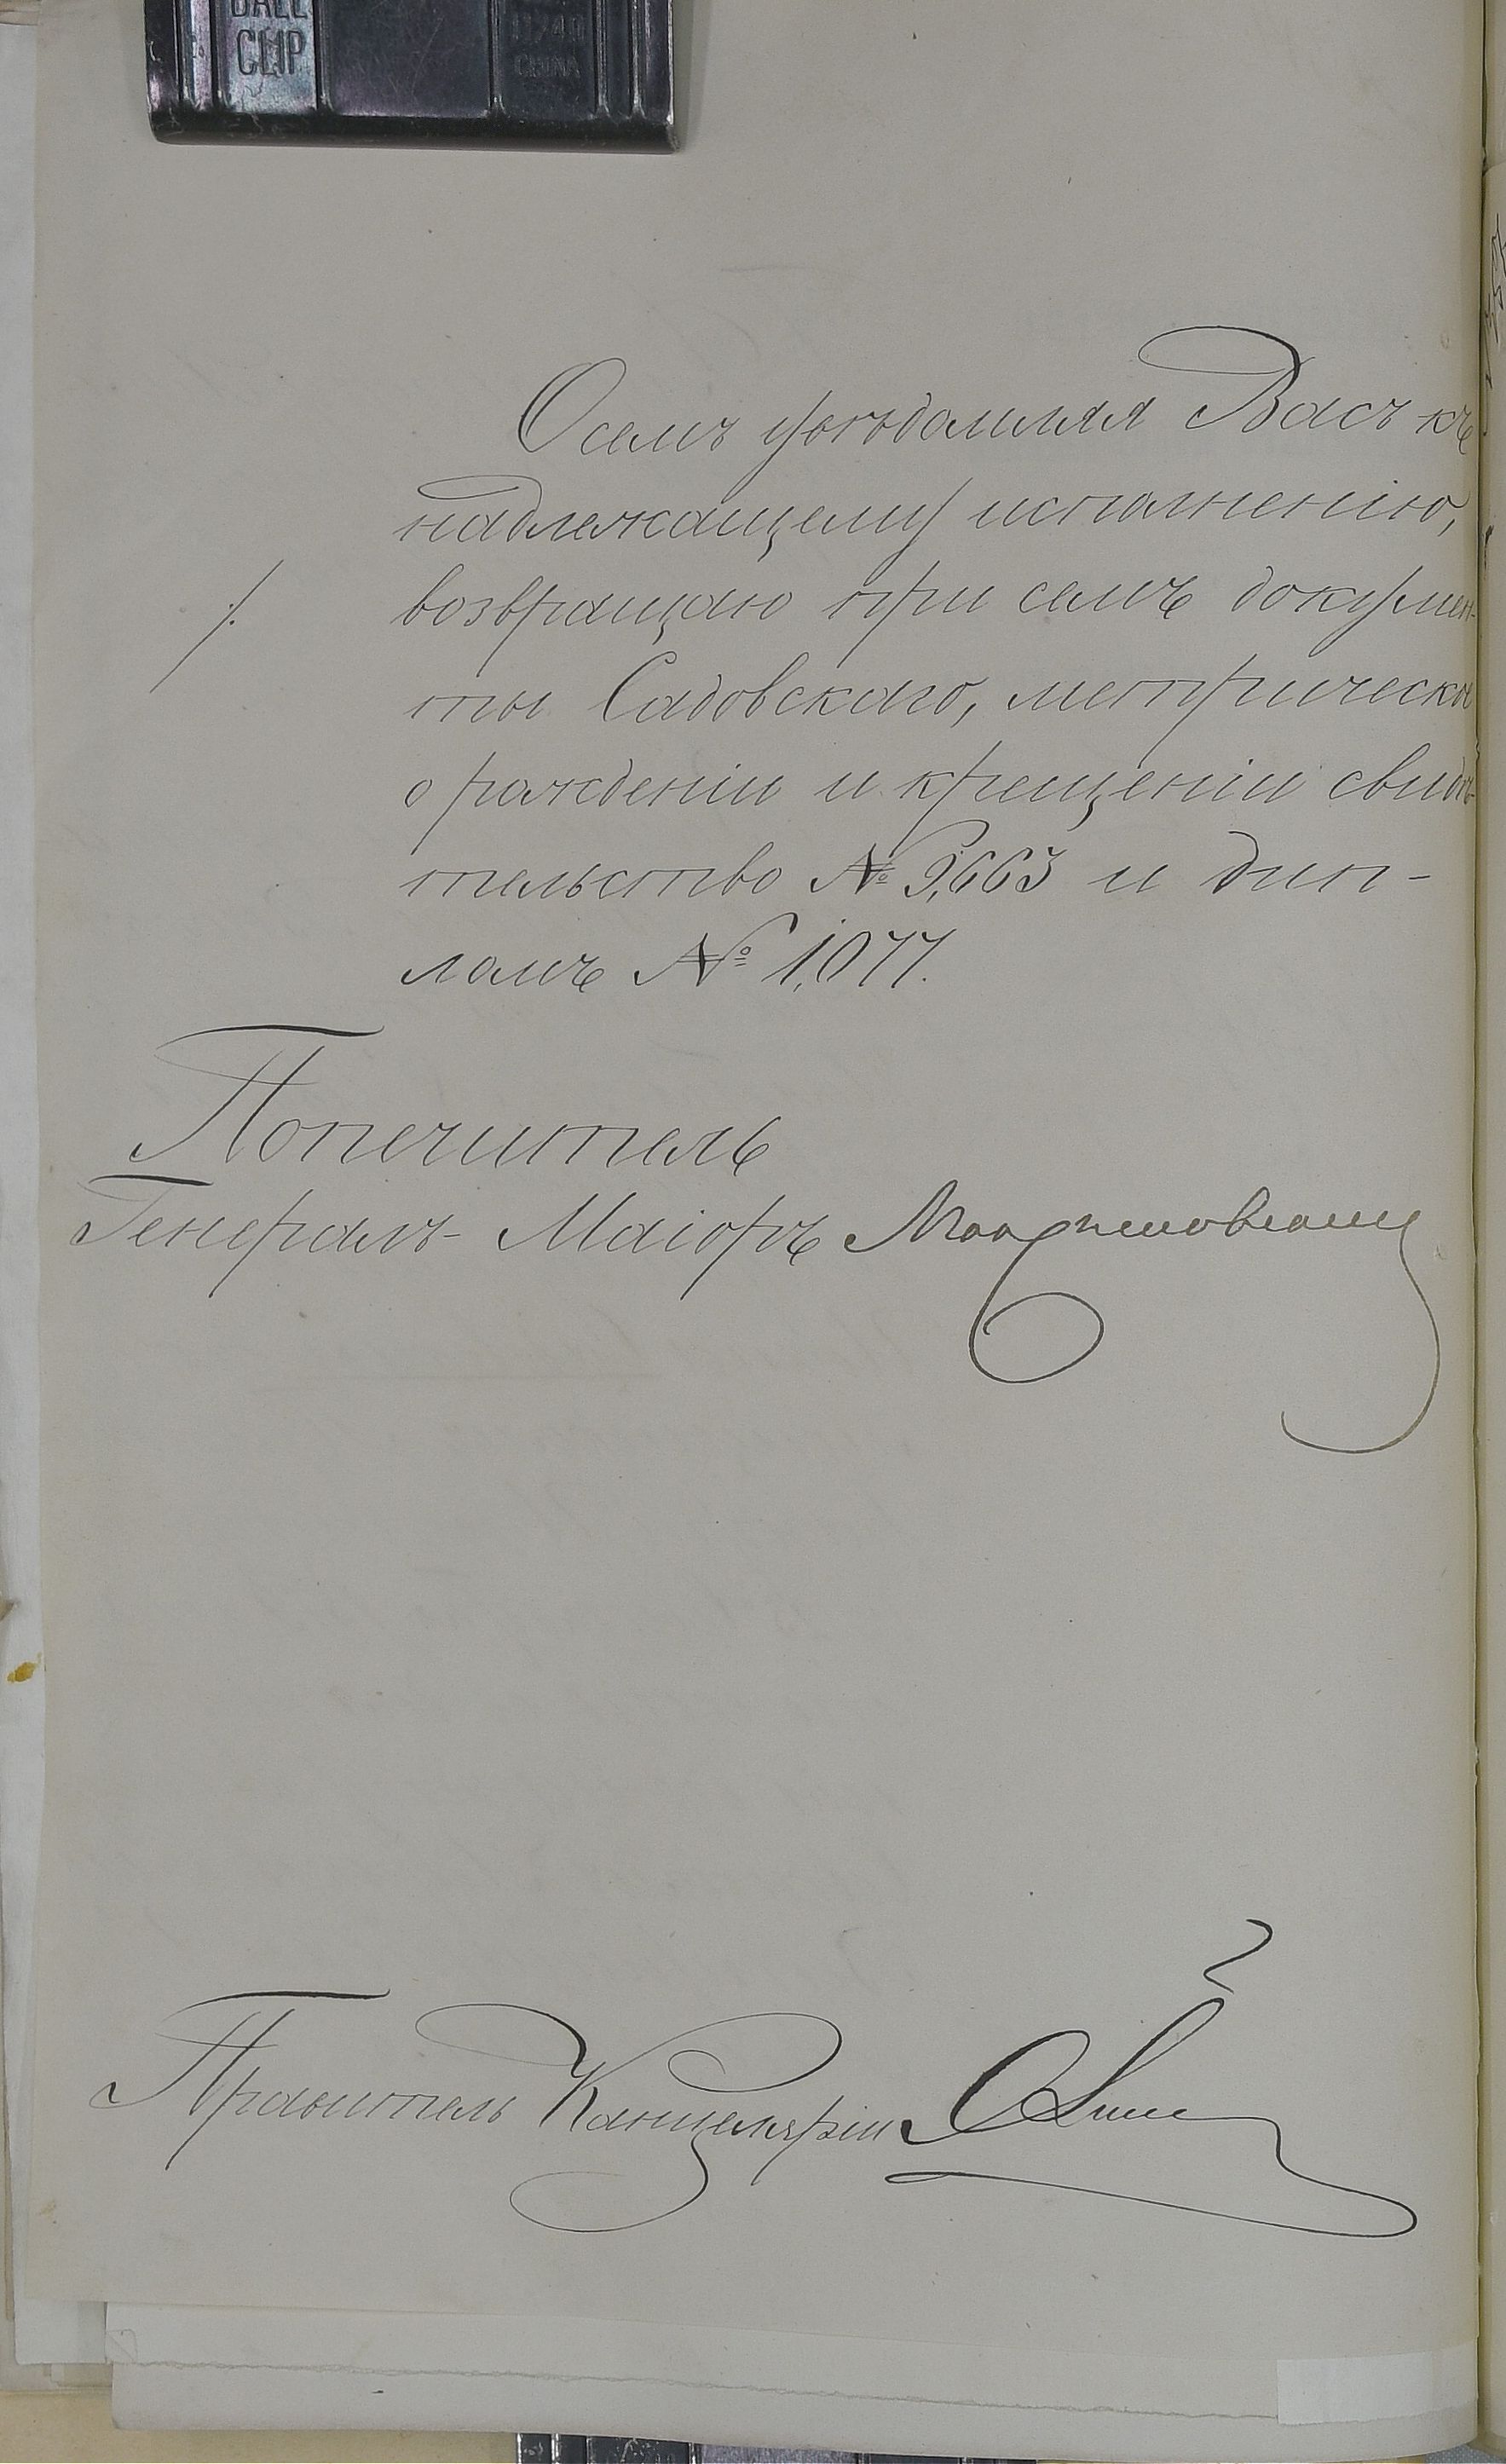 BALL
CLIP
CHINA
О семъ увѣдомляя Васъ къ
надлежащему исполненію,
возвращаю при семъ докумен-
ты Садовскаго, метрическое
о рожденіи и крещеніи свидѣ-
тельство № 9,663 и дип-
ломъ № 1,077.
Попечитель
Генералъ-Маіоръ
Правитель Канцеляріи